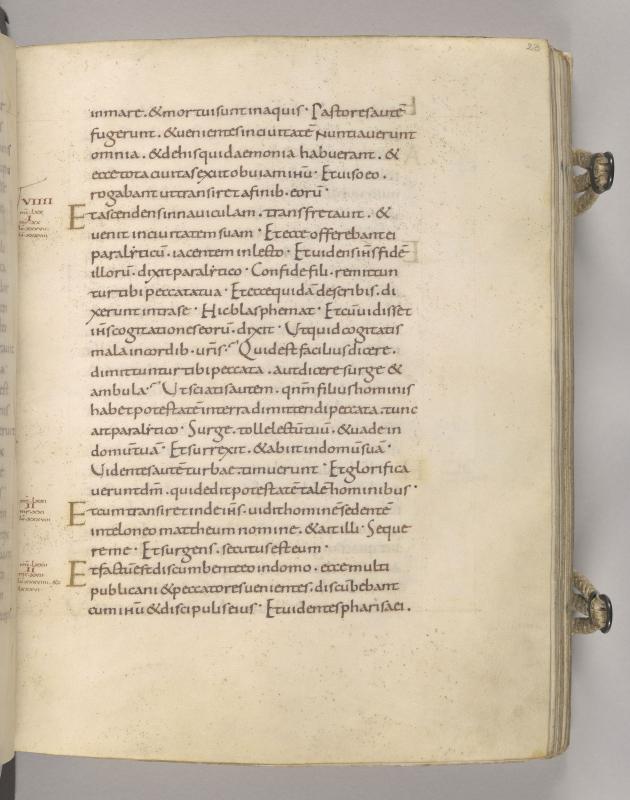 23
inmare. & mortuisuntinaquis · Pastoresautē
fugerunt. & uenientesinciuitatē Nuntiauerunt
omnia. & dehisquidaemonia habuerant. &
eccetotaciuitasexiitobuiam ihū · Etuisoeo.
rogabantuttransiret afinib. eorū ·
VIIII
Etascendensinnauiculam. transfretauit. &
uenit inciuitatemsuam · Etecce offerebantei
paralyticū. iacentem inlecto. Etuidensih̄sfidē
illorū. dixitparalytico · Confidefili. remittun
turtibi peccatatua · Eteccequidā describis. di
xeruntintrase · Hicblasphemat · Etcū uidisset
ih̄scogitationeseorū. dixit · Utquidcogitatis
malaincordib. uris · Quidestfaciliusdicere.
dimittunturtibipeccata. autdicere surge &
ambula · Utsciatisautem. qnmfiliushominis
habetpotestatē interradimittendipeccata. tunc
aitparalytico · Surge. tollelectūtuū. & uade in
domūtuā · Etsurrexit. & abiitindomūsuā ·
Uidentesautēturbae. timuerunt · Etglorifica
ueruntdm̄. quideditpotestatētalē hominibus ·
Etcumtransiretindeih̄s. uidithominēsedentē
inteloneo mattheumnomine. & aitilli · Seque
reme · Etsurgens. secutusesteum ·
II
Etfactūestdiscumbenteeoindomo. eccemulti
publicani & peccatoresuenientes. discūbebant
cumihū & discipuliseius · Etuidentespharisaei.